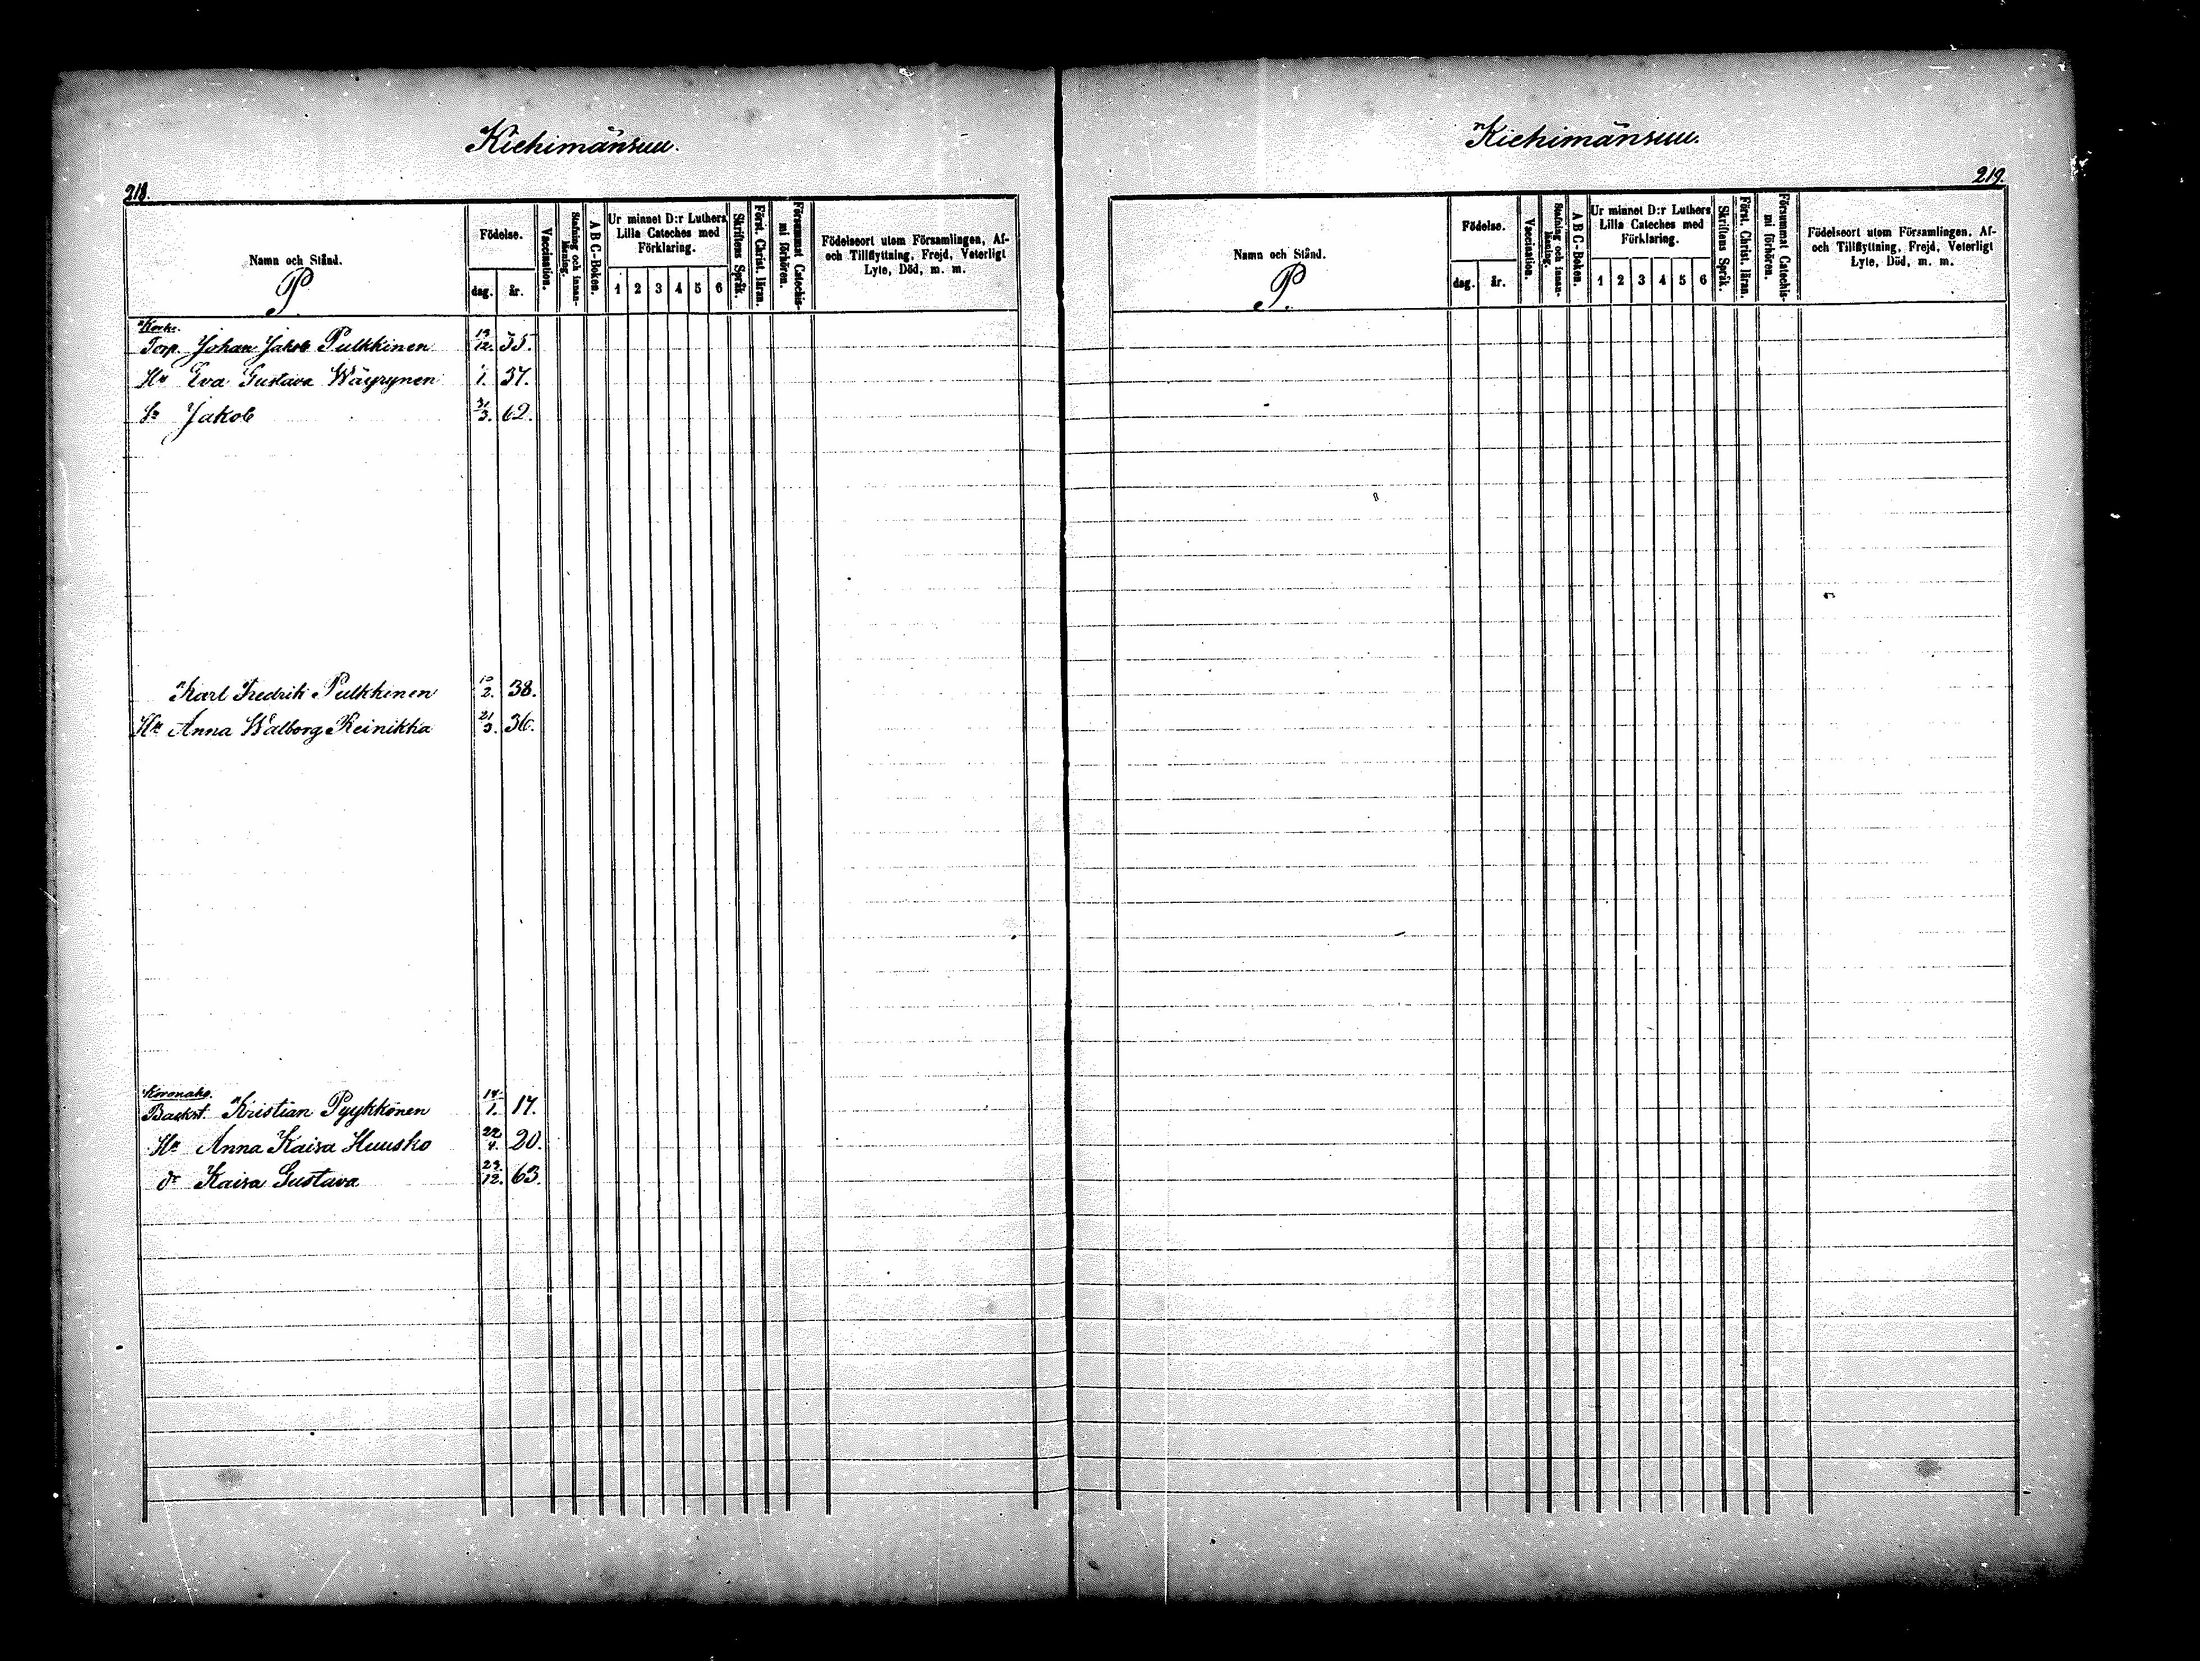 Kiehimänsuu.
218.
Namn och Stånd.
P.
Födelse.
dag. år.
Vaccination.
Stafning och innan-läsning.
A B C-Boken.
Ur minnet D:r Luthers
Lilla Cateches med
Förklaring.
1 2 3 4 5 6
Skriftens Språk.
Först. Christ. läran.
Försummat Catechis-
mi förhören.
Födelseort utom Församlingen, Af-
och Tillflyttning, Frejd, Veterligt
Lyte, Död, m. m.
Torp. Johan Jakob Pulkkinen 12. 35.
Hu Eva Gustava Wäyrynen 1. 37.
Sr Jakob 31/3. 62.
Karl Fredrik Pulkkinen 10/2. 38.
Hu Anna Walborg Reinikka 21/3. 36.
Koronaho.
Backst. Kristian Pyykkönen 14/1. 17.
Hu Anna Kaisa Huusko 22/4. 20.
dr Kaisa Gustava 23/12. 63.
Kiehimänsuu.
219.
Namn och Stånd.
P.
Födelse.
dag. år.
Vaccination.
Stafning och innan-läsning.
A B C-Boken.
Ur minnet D:r Luthers
Lilla Cateches med
Förklaring.
1 2 3 4 5 6
Skriftens Språk.
Först. Christ. läran.
Försummat Catechis-
mi förhören.
Födelseort utom Församlingen, Af-
och Tillflyttning, Frejd, Veterligt
Lyte, Död, m. m.